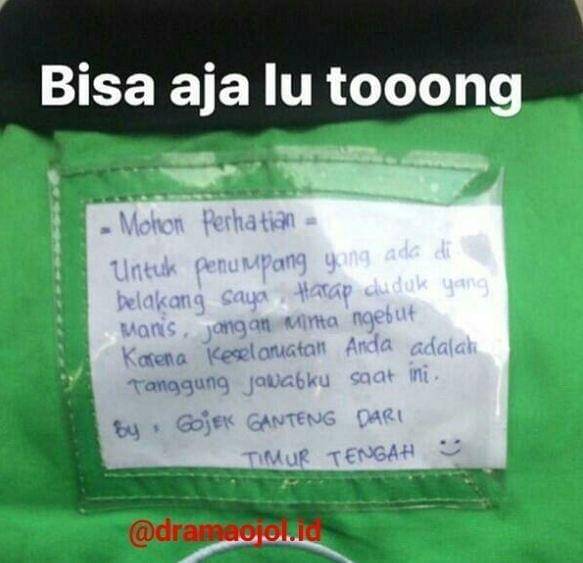 Bisa aja lu tooong
= Mohon Perhatian =
Untuk penumpang yang ada di
belakang saya, Harap duduk yang
Manis, jangan Minta ngebut
Karena Keselamatan Anda adalah
Tanggung jawabku saat ini.
By : GOJEK GANTENG DARI
TIMUR TENGAH
@dramaojol.id